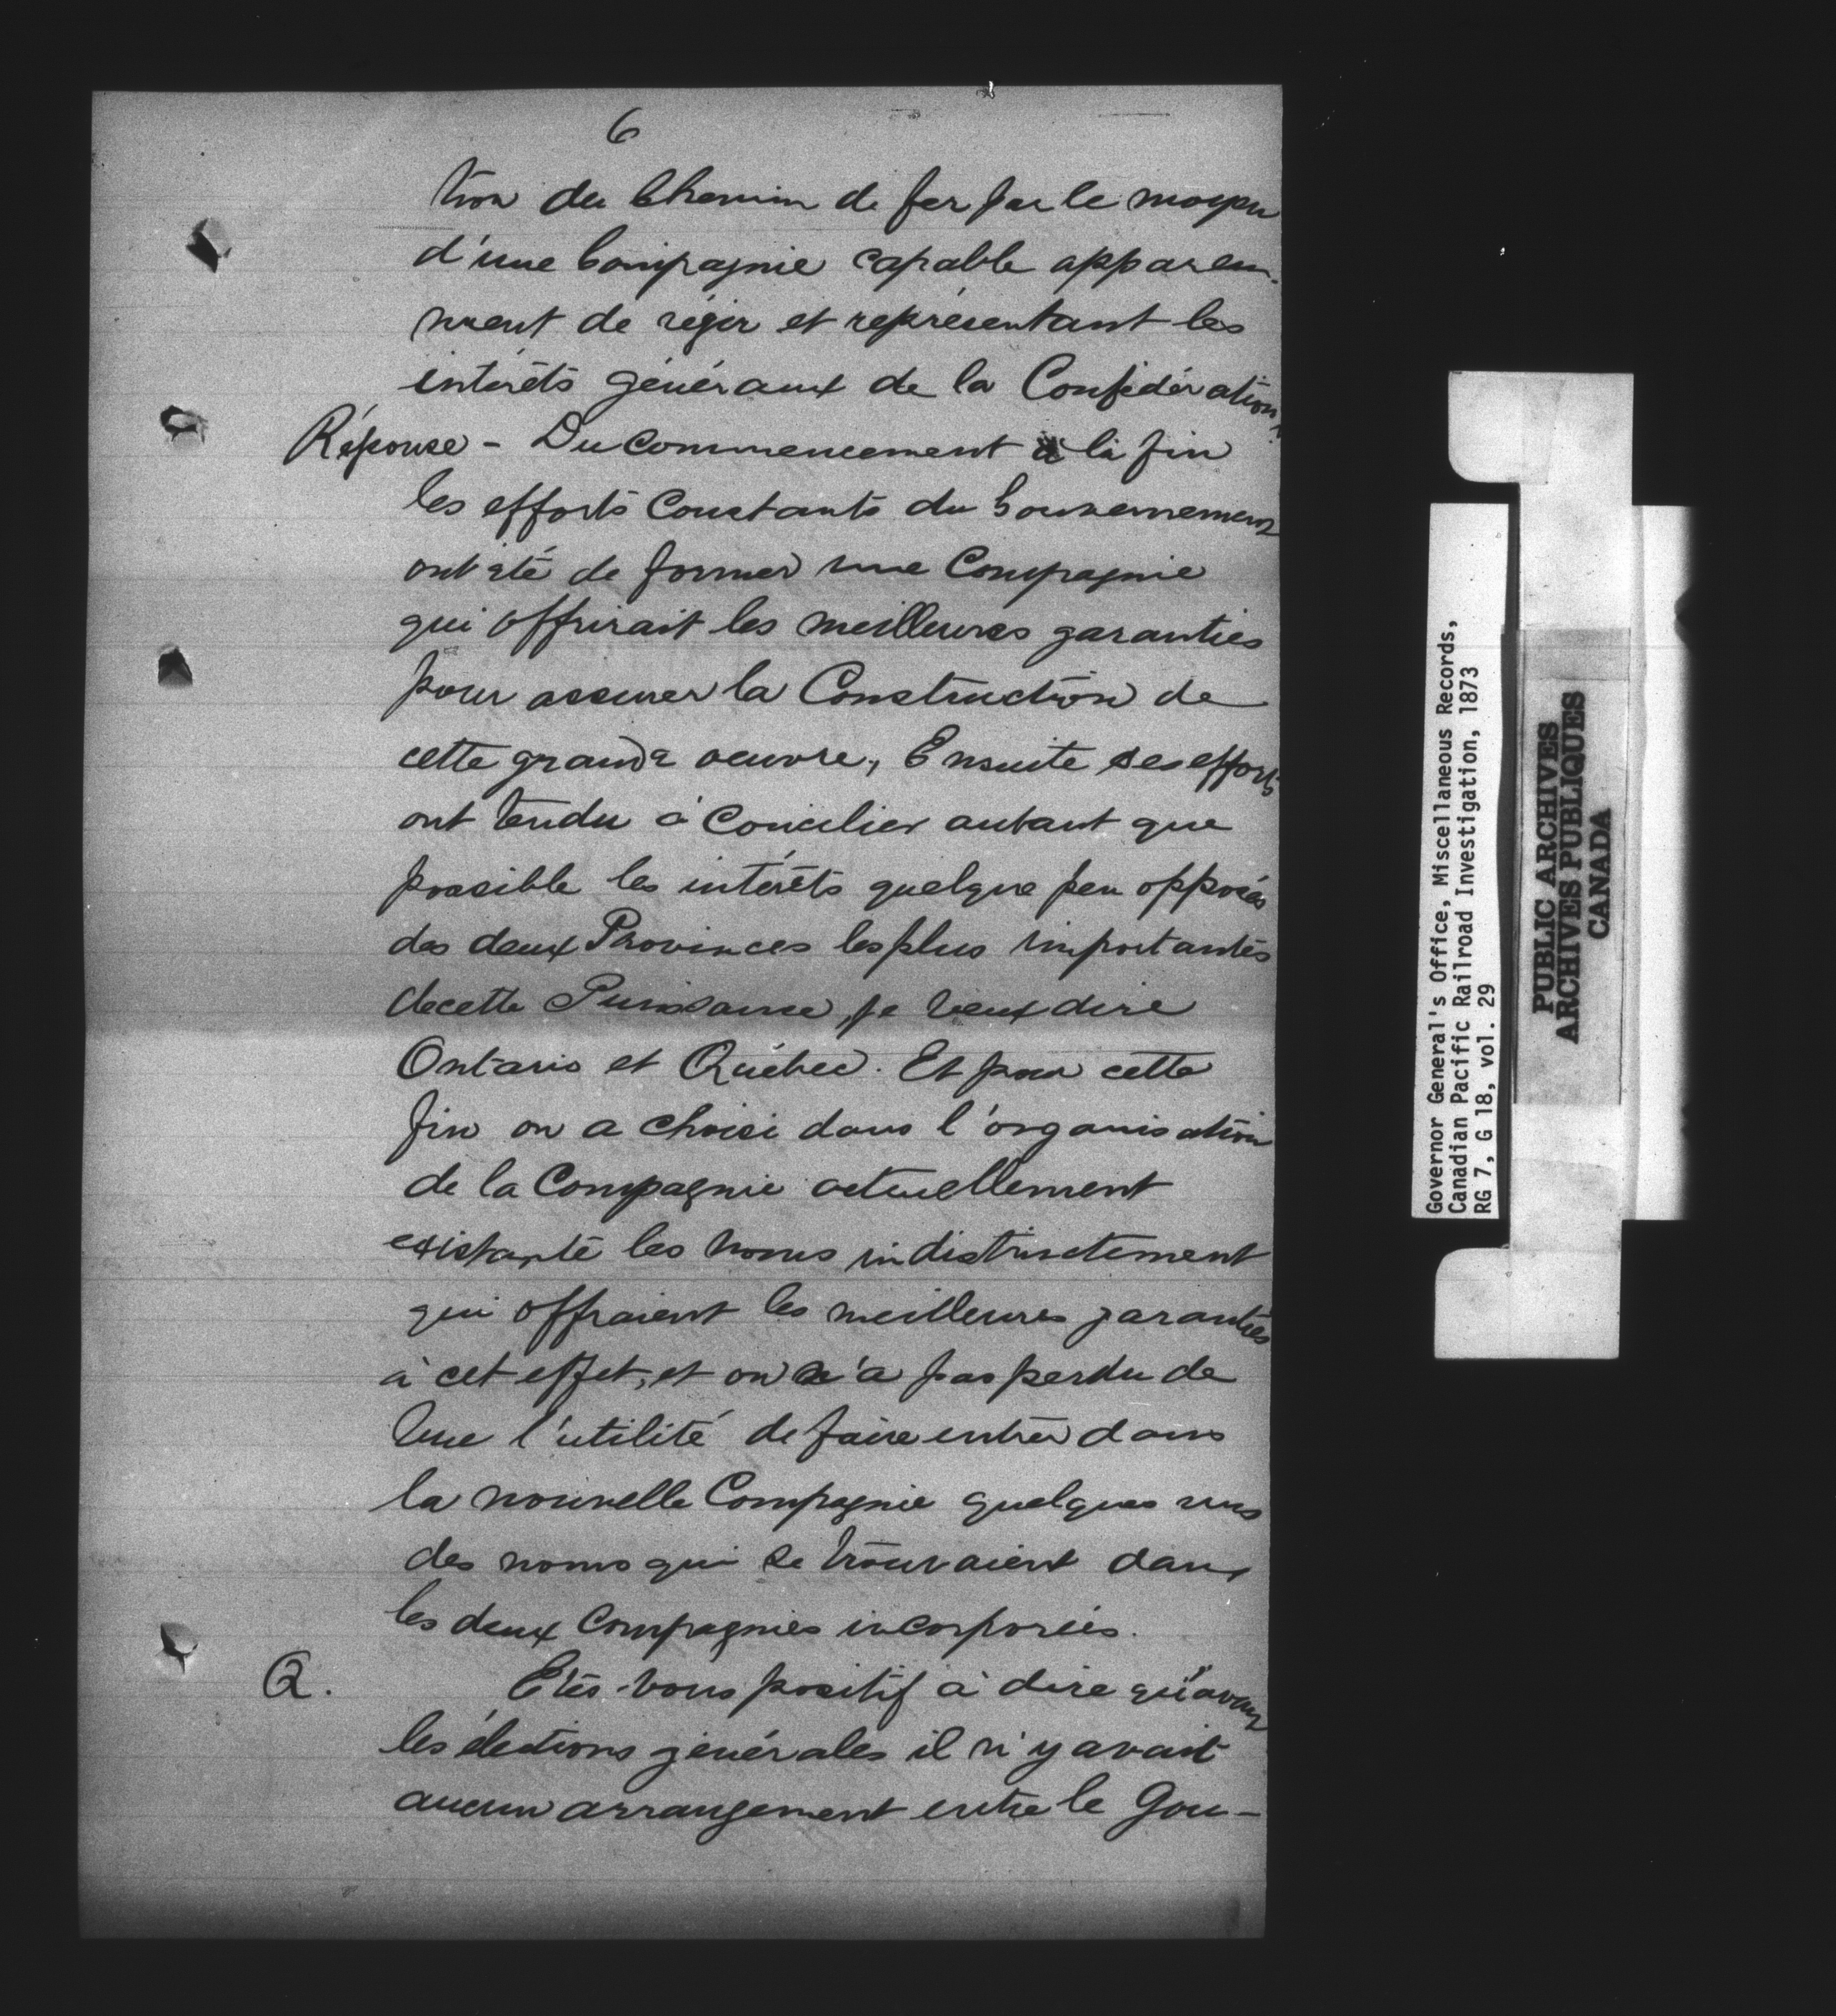 6
tion du Chemin de fer par le moyen
d'une Compagnie capable apparem-
ment de régir et représentant les
intérêts généraux de la Confédération?
Réponse - Du commencement à la fin
les efforts constants du Gouvernement
ont été de former une Compagnie
qui offrirait les meilleures garanties
pour assurer la Construction de
cette grande oeuvre, Ensuite ses efforts
ont tendu à concilier autant que
possible les intérêts quelque peu opposés
des deux Provinces les plus importantes
de cette Puissance, je veux dire
Ontario et Québec. Et pour cette
fin on a choisi dans l'organisation
de la Compagnie actuellement
existante les noms indistinctement
qui offraient les meilleures garanties
à cet effet, et on n'a pas perdu de
vue l'utilité de faire entrer dans
la nouvelle Compagnie quelques uns
des noms qui se trouvaient dans
les deux Compagnies incorporées.
Q. Etes-vous positif à dire qu'avant
les élections générales il n'y avait
aucun arrangement entre le Gou-
Governor General's Office, Miscellaneous Records,
Canadian Pacific Railroad Investigation, 1873
RG 7, G 18, vol. 29
PUBLIC ARCHIVES
ARCHIVES PUBLIQUES
CANADA